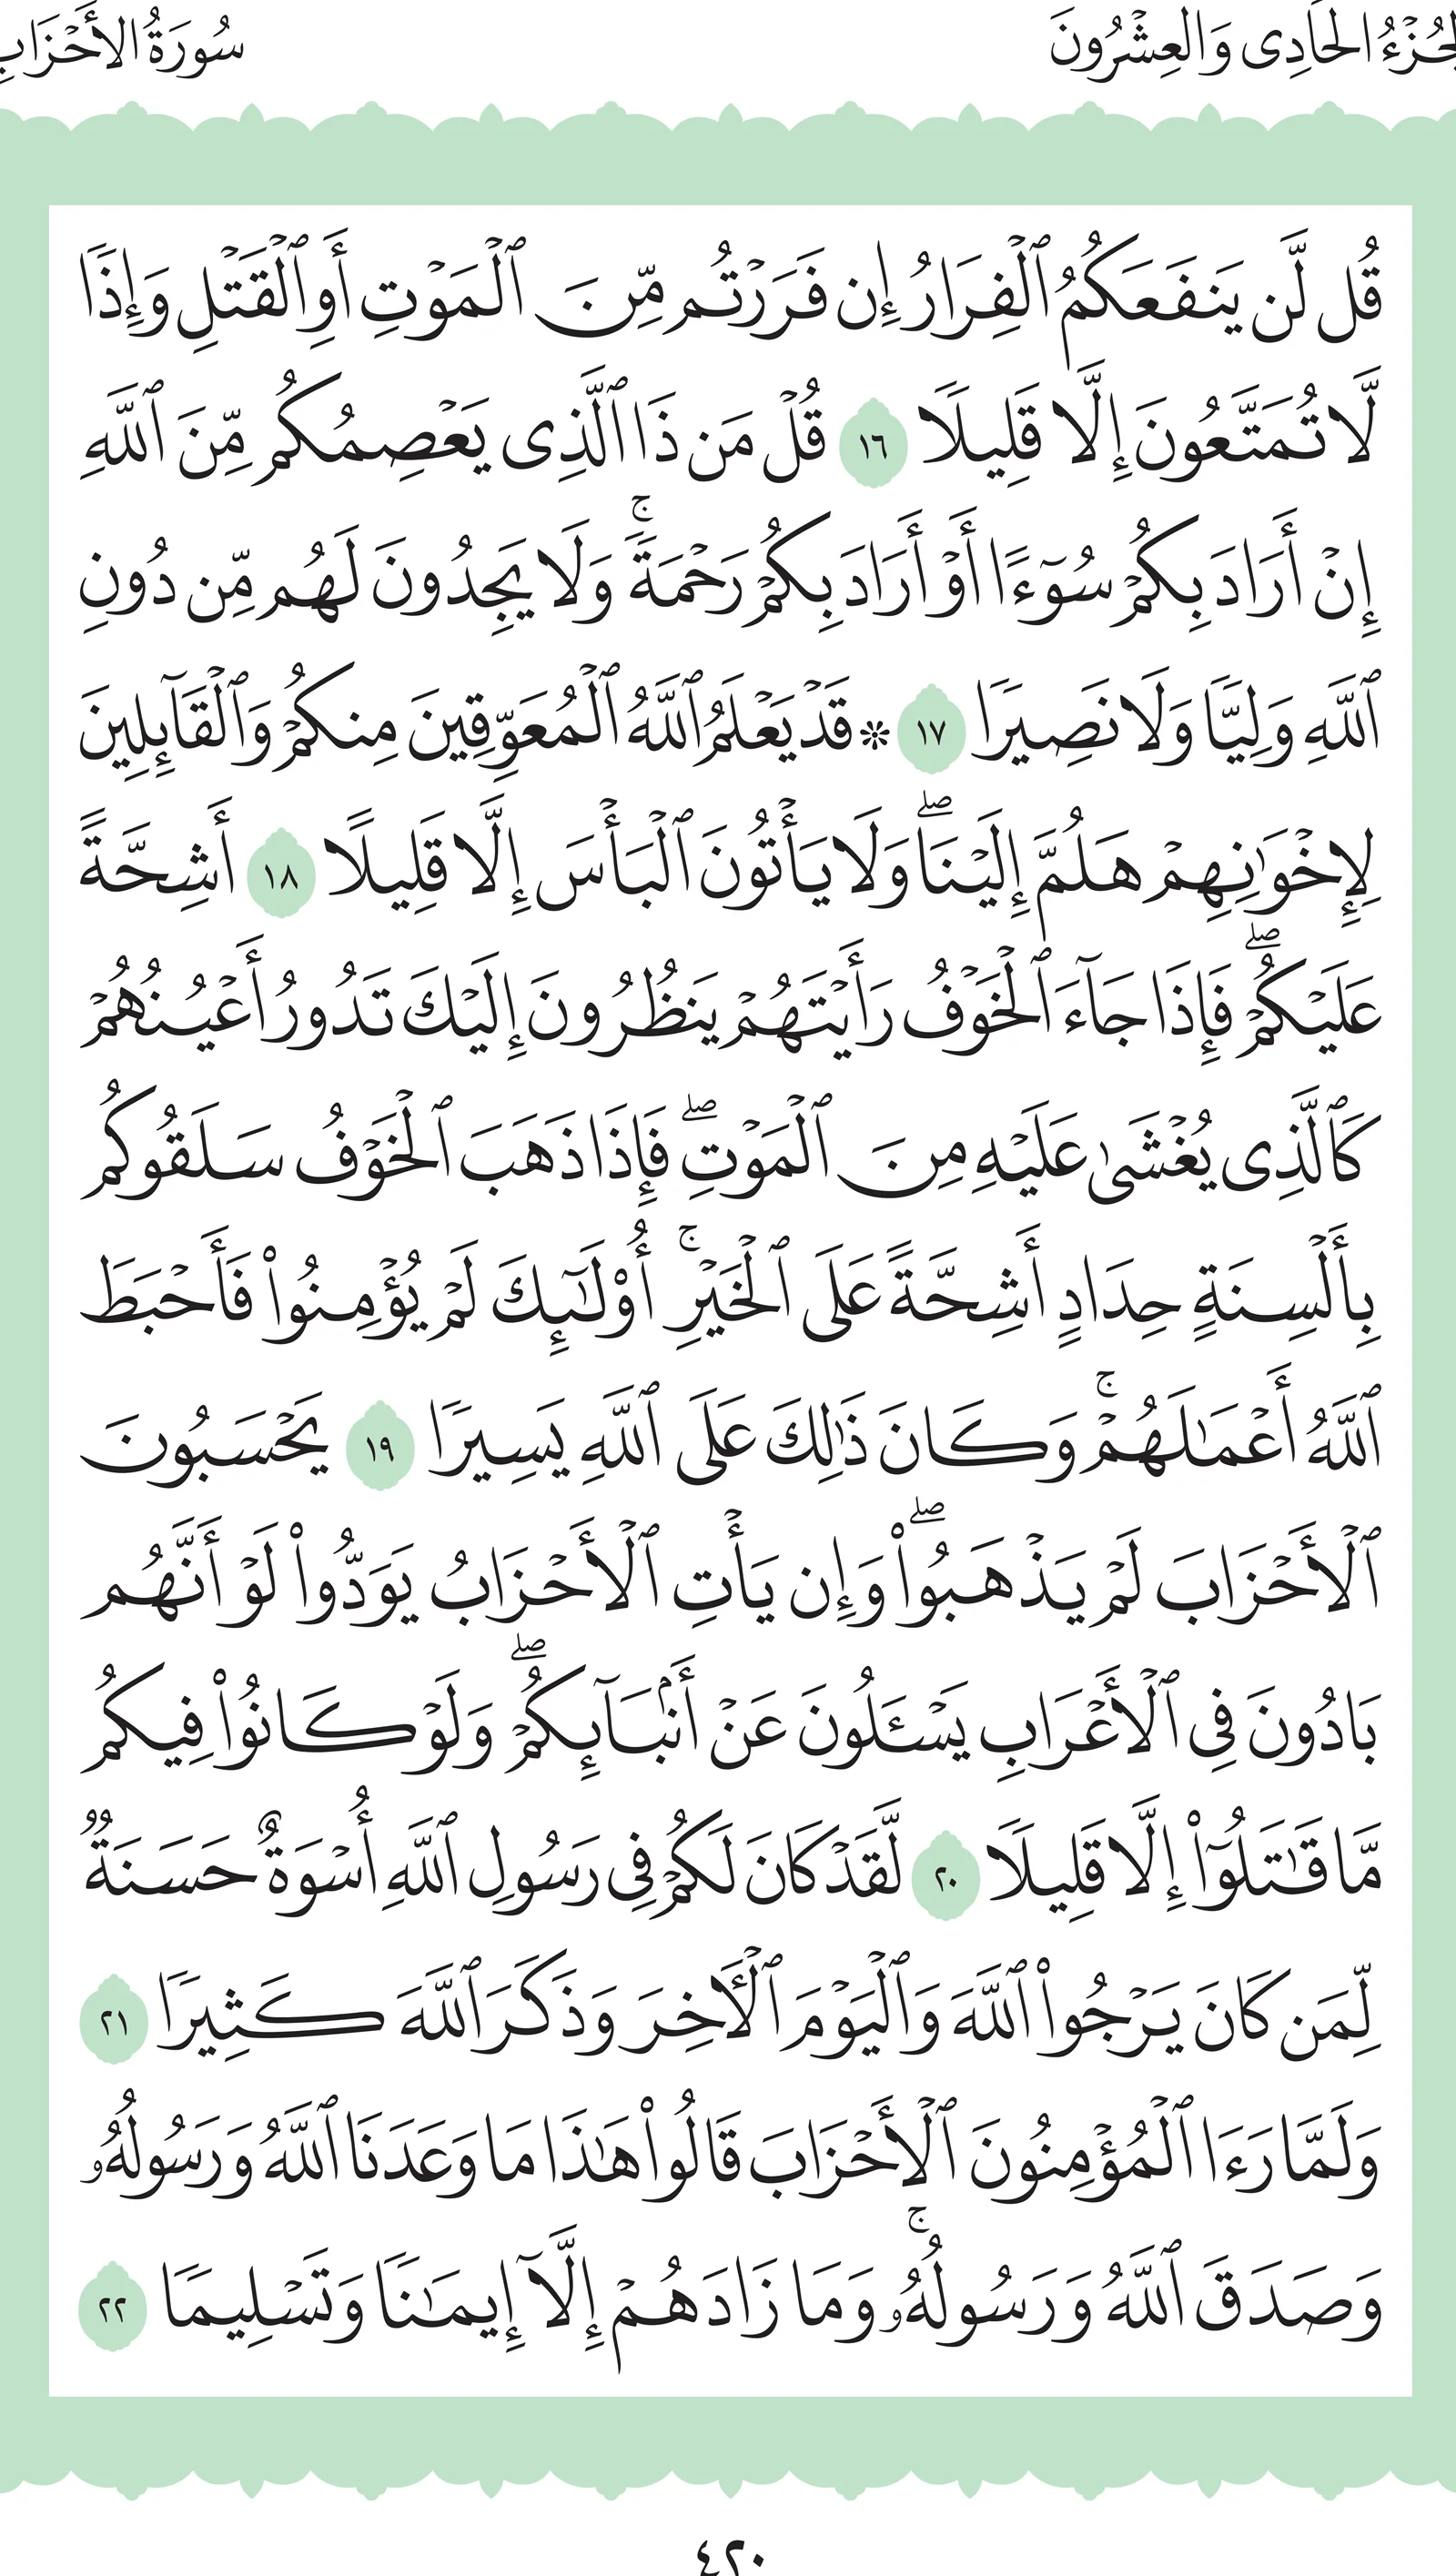 الجُزْءُ الحَادِى وَالعِشْرُونَ
سُورَةُ الأَحْزَابِ
قُل لَّن يَنفَعَكُمُ ٱلْفِرَارُ إِن فَرَرْتُم مِّنَ ٱلْمَوْتِ أَوِ ٱلْقَتْلِ وَإِذًا
لَّا تُمَتَّعُونَ إِلَّا قَلِيلًا ١٦ قُلْ مَن ذَا ٱلَّذِى يَعْصِمُكُم مِّنَ ٱللَّهِ
إِنْ أَرَادَ بِكُمْ سُوٓءًا أَوْ أَرَادَ بِكُمْ رَحْمَةً ۚ وَلَا يَجِدُونَ لَهُم مِّن دُونِ
ٱللَّهِ وَلِيًّا وَلَا نَصِيرًا ١٧ ۞ قَدْ يَعْلَمُ ٱللَّهُ ٱلْمُعَوِّقِينَ مِنكُمْ وَٱلْقَآئِلِينَ
لِإِخْوَٰنِهِمْ هَلُمَّ إِلَيْنَا ۖ وَلَا يَأْتُونَ ٱلْبَأْسَ إِلَّا قَلِيلًا ١٨ أَشِحَّةً
عَلَيْكُمْ ۖ فَإِذَا جَآءَ ٱلْخَوْفُ رَأَيْتَهُمْ يَنظُرُونَ إِلَيْكَ تَدُورُ أَعْيُنُهُمْ
كَٱلَّذِى يُغْشَىٰ عَلَيْهِ مِنَ ٱلْمَوْتِ ۖ فَإِذَا ذَهَبَ ٱلْخَوْفُ سَلَقُوكُم
بِأَلْسِنَةٍ حِدَادٍ أَشِحَّةً عَلَى ٱلْخَيْرِ ۚ أُو۟لَـٰٓئِكَ لَمْ يُؤْمِنُوا۟ فَأَحْبَطَ
ٱللَّهُ أَعْمَـٰلَهُمْ ۚ وَكَانَ ذَٰلِكَ عَلَى ٱللَّهِ يَسِيرًا ١٩ يَحْسَبُونَ
ٱلْأَحْزَابَ لَمْ يَذْهَبُوا۟ ۖ وَإِن يَأْتِ ٱلْأَحْزَابُ يَوَدُّوا۟ لَوْ أَنَّهُم
بَادُونَ فِى ٱلْأَعْرَابِ يَسْـَٔلُونَ عَنْ أَنۢبَآئِكُمْ ۖ وَلَوْ كَانُوا۟ فِيكُم
مَّا قَـٰتَلُوٓا۟ إِلَّا قَلِيلًا ٢٠ لَّقَدْ كَانَ لَكُمْ فِى رَسُولِ ٱللَّهِ أُسْوَةٌ حَسَنَةٌ
لِّمَن كَانَ يَرْجُوا۟ ٱللَّهَ وَٱلْيَوْمَ ٱلْـَٔاخِرَ وَذَكَرَ ٱللَّهَ كَثِيرًا ٢١
وَلَمَّا رَءَا ٱلْمُؤْمِنُونَ ٱلْأَحْزَابَ قَالُوا۟ هَـٰذَا مَا وَعَدَنَا ٱللَّهُ وَرَسُولُهُۥ
وَصَدَقَ ٱللَّهُ وَرَسُولُهُۥ ۚ وَمَا زَادَهُمْ إِلَّآ إِيمَـٰنًا وَتَسْلِيمًا ٢٢
٤٢٠